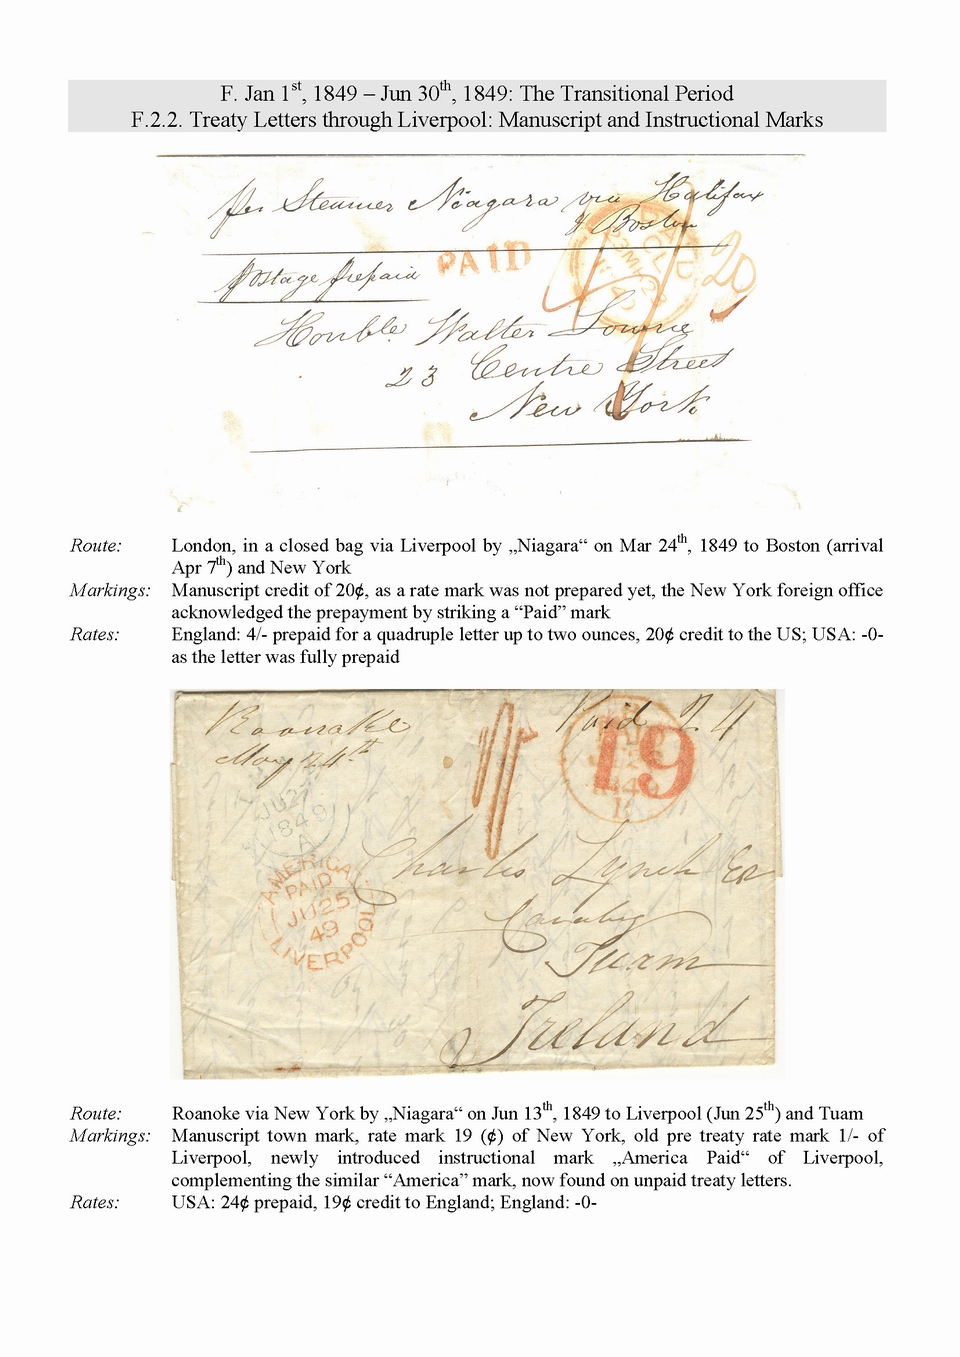 F. Jan 1st, 1849 – Jun 30th, 1849: The Transitional Period
F.2.2. Treaty Letters through Liverpool: Manuscript and Instructional Marks
per Steamer Niagara via Halifax
& Boston
PAID
20
Postage prepaid
Honble. Walter Lowrie
23 Centre Street
New York
Route: London, in a closed bag via Liverpool by „Niagara“ on Mar 24th, 1849 to Boston (arrival
Apr 7th) and New York
Markings: Manuscript credit of 20¢, as a rate mark was not prepared yet, the New York foreign office
acknowledged the prepayment by striking a “Paid” mark
Rates: England: 4/- prepaid for a quadruple letter up to two ounces, 20¢ credit to the US; USA: -0-
as the letter was fully prepaid
Roanoke
May 24th
Paid 24
19
JU27
1849
A
AMERICA
PAID
JU25
49
LIVERPOOL
Charles Lynch Er
Tuam
Ireland
Route: Roanoke via New York by „Niagara“ on Jun 13th, 1849 to Liverpool (Jun 25th) and Tuam
Markings: Manuscript town mark, rate mark 19 (¢) of New York, old pre treaty rate mark 1/- of
Liverpool, newly introduced instructional mark „America Paid“ of Liverpool,
complementing the similar “America” mark, now found on unpaid treaty letters.
Rates: USA: 24¢ prepaid, 19¢ credit to England; England: -0-